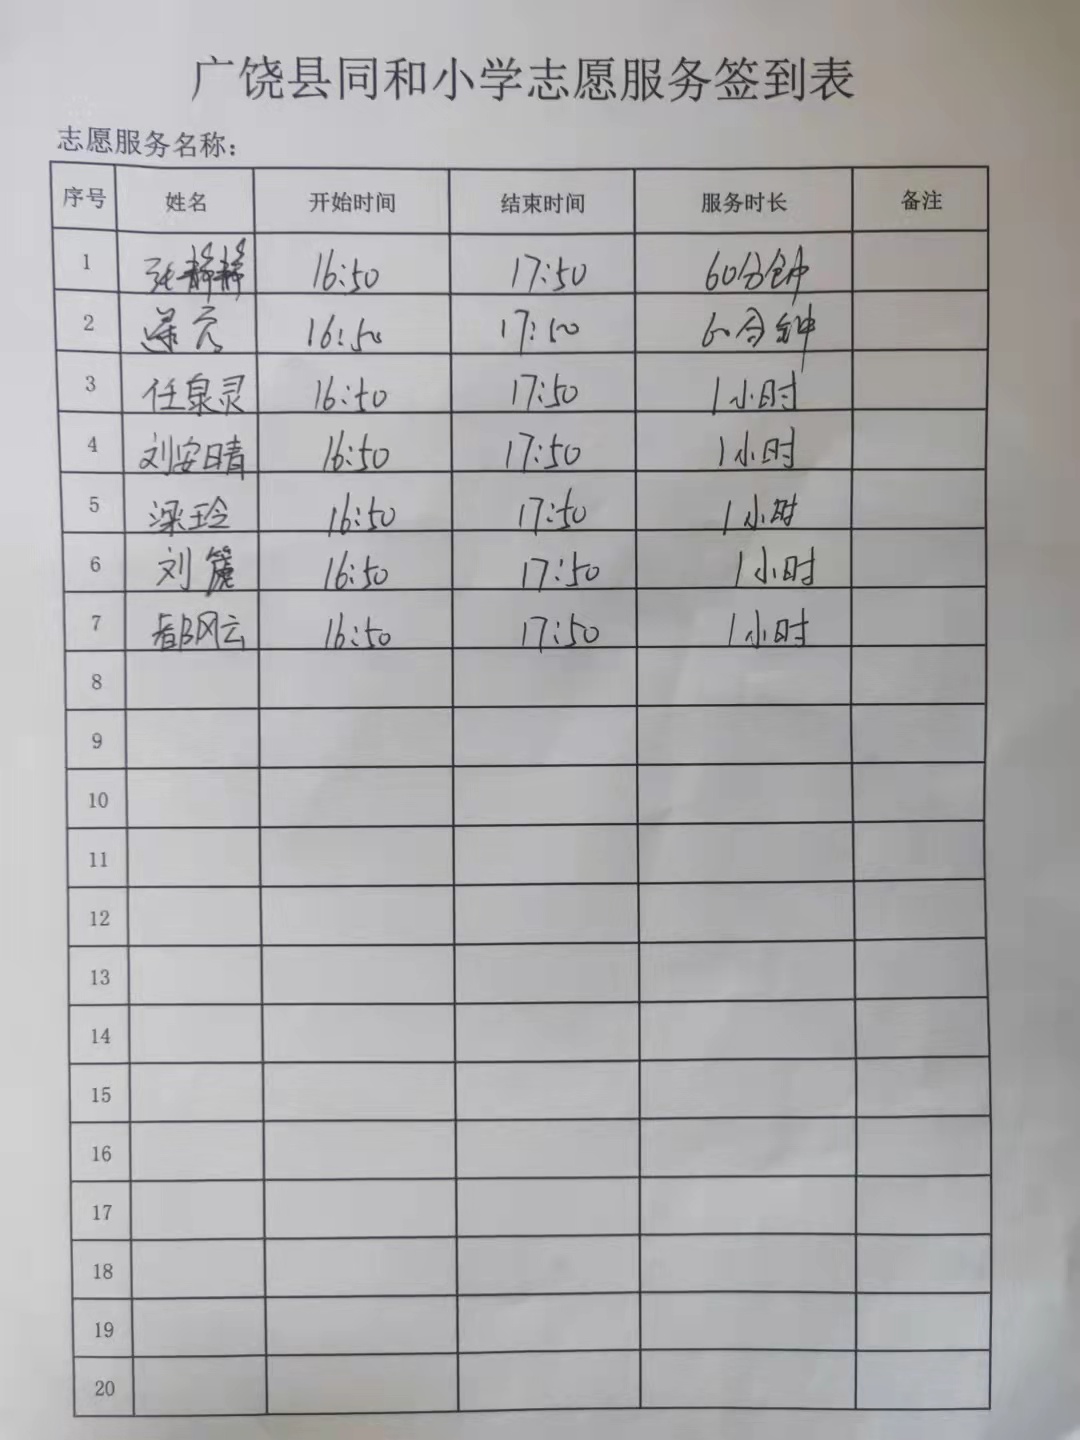 广饶县同和小学志愿服务签到表
志愿服务名称：
序号 姓名 开始时间 结束时间 服务时长 备注
1 张静静 16:50 17:50 60分钟
2 16:50 17:50 60分钟
3 任泉灵 16:50 17:50 1小时
4 刘安晴 16:50 17:50 1小时
5 梁玲 16:50 17:50 1小时
6 刘 16:50 17:50 1小时
7 郜风云 16:50 17:50 1小时
8
9
10
11
12
13
14
15
16
17
18
19
20